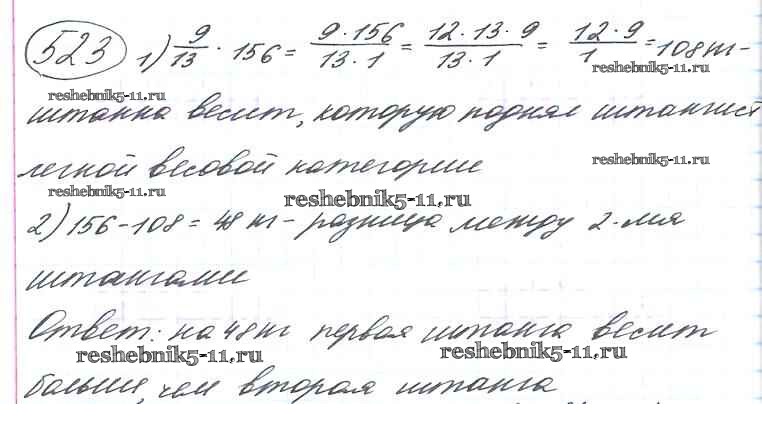 523 1) 9/13 · 156 = 9 · 156 / 13 · 1 = 12 · 13 · 9 / 13 · 1 = 12 · 9 / 1 = 108 кг –
reshebnik5-11.ru
reshebnik5-11.ru
штанга весит, которую поднял штангист
легкой весовой категории
reshebnik5-11.ru
reshebnik5-11.ru
reshebnik5-11.ru
2) 156 – 108 = 48 кг – разница между 2-мя
штангами
Ответ: на 48 кг первая штанга весит
reshebnik5-11.ru
reshebnik5-11.ru
больше, чем вторая штанга